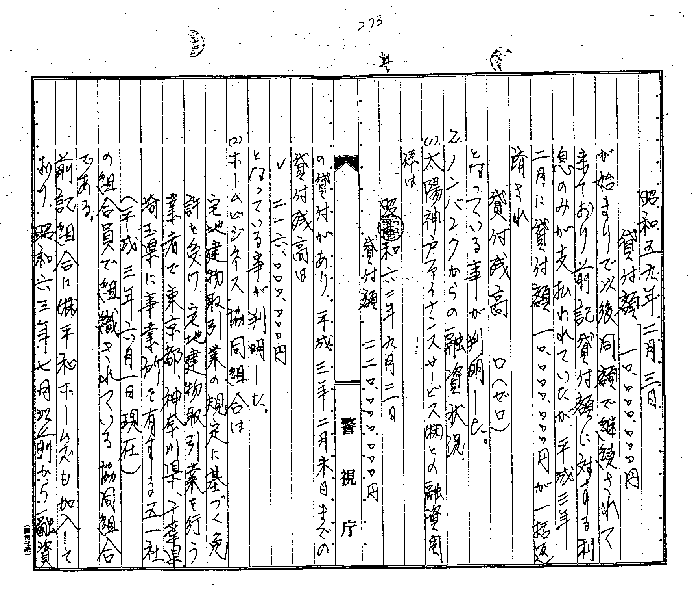 273
昭和五六年二月三日
貸付額 一〇〇〇〇〇〇円
が始まりで以後同額で継続されて
来ており前記貸付額に対する利
息のみが支払われていたが平成三年
二月に貸付額一〇、〇〇〇、〇〇〇円が一括返
済され
貸付残高 〇(ゼロ)
となっている事が判明した。
2ノンバンクからの融資状況
(1)太陽神戸ファイナンスサービス㈱との融資関
係は
昭和六二年九月二一日
貸付額 二二〇〇〇〇〇〇円
警視庁
の貸付があり、平成三年二月末日までの
貸付残高は
二一六、〇〇〇〇〇〇円
となっている事が判明した。
(2)ホームビジネス協同組合は
宅地建物取引業の規定に基づく免
許を受け宅地建物取引業を行う
業者で東京都、神奈川県、千葉県
埼玉県に事業所を有する五一社
(平成三年六月一日現在)
の組合員で組織されている協同組合
である。
前記組合に㈱平和ホームズも加入して
おり昭和六三年七月以前から融資